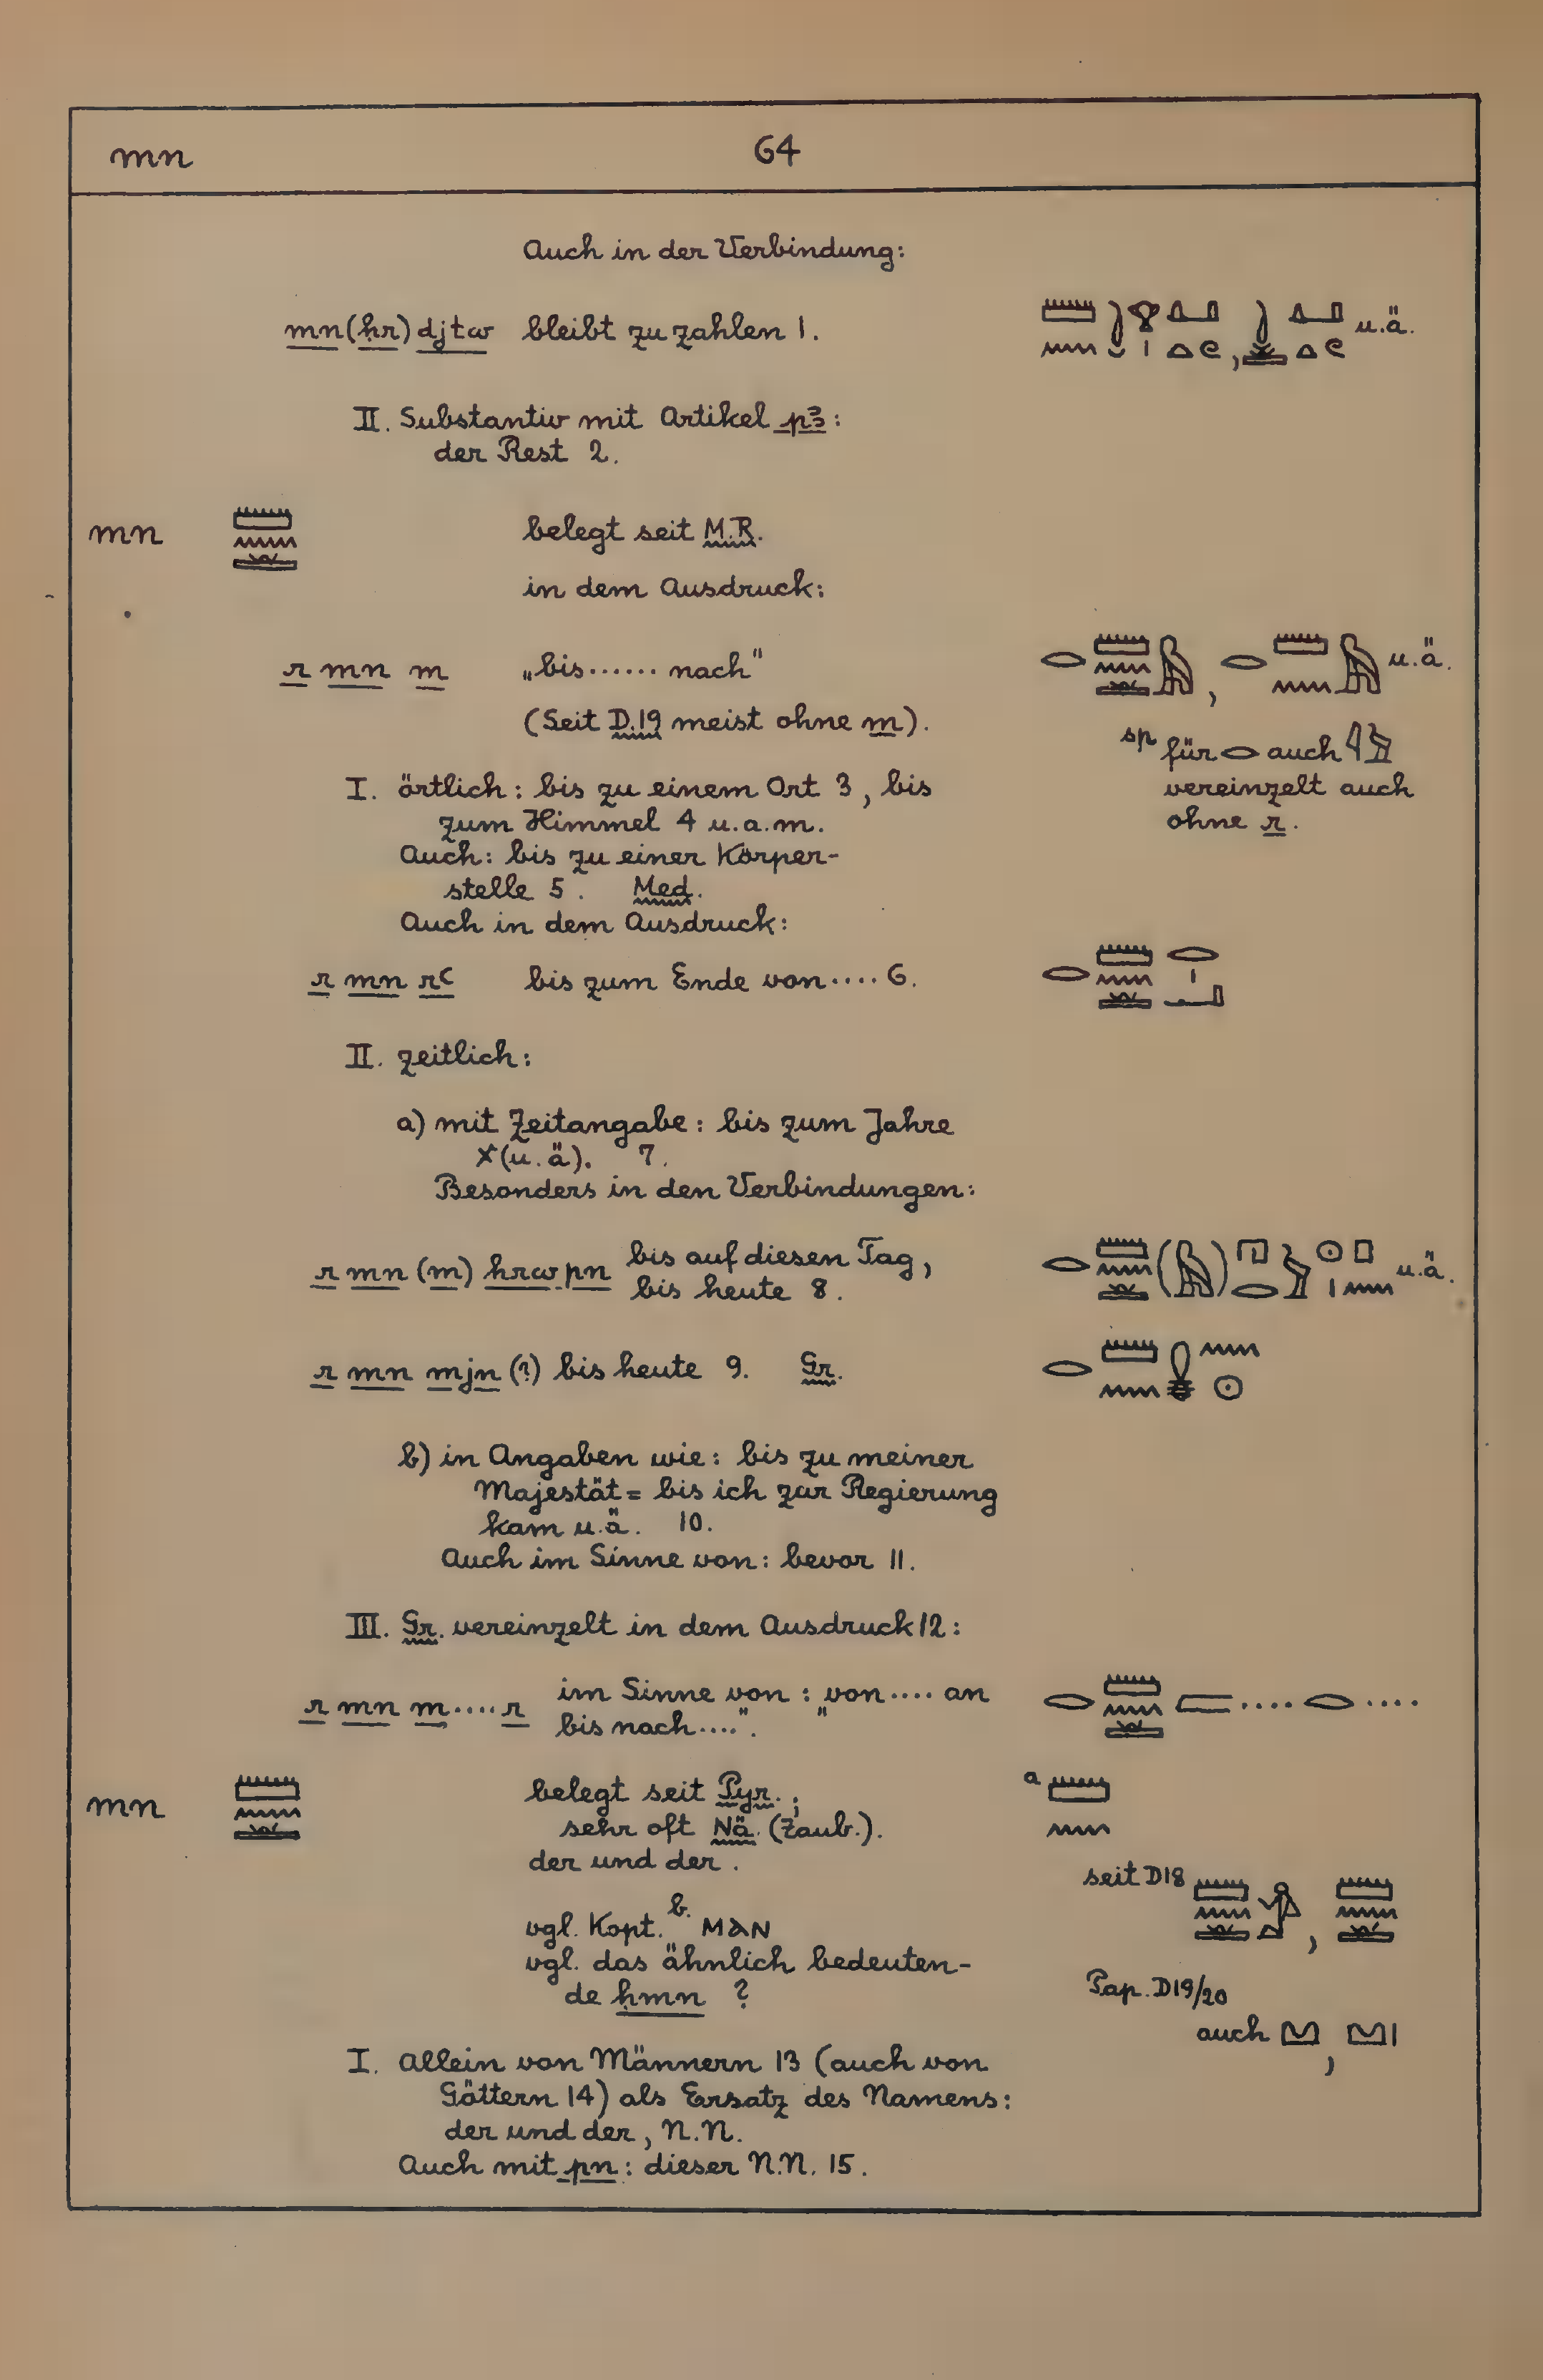 mn 64
Auch in der Verbindung:
mn (ḥr) djtw bleibt zu zahlen 1. u.ä.
II. Substantiv mit Artikel p3:
der Rest 2.
mn belegt seit M.R.
in dem Ausdruck:
r mn m „bis...... nach" u.ä.
(Seit D.19 meist ohne m).
sp für 𓂋 auch 𓇋𓃀
vereinzelt auch
ohne r.
I. örtlich: bis zu einem Ort 3, bis
zum Himmel 4 u.a.m.
Auch: bis zu einer Körper-
stelle 5. Med.
Auch in dem Ausdruck:
r mn rꜥ bis zum Ende von.... 6.
II. zeitlich:
a) mit Zeitangabe: bis zum Jahre
x (u.ä). 7.
Besonders in den Verbindungen:
r mn (m) hrw pn bis auf diesen Tag, u.ä.
bis heute 8.
r mn mjn (?) bis heute 9. Gr.
b) in Angaben wie: bis zu meiner
Majestät = bis ich zur Regierung
kam u.ä. 10.
Auch im Sinne von: bevor 11.
III. Gr. vereinzelt in dem Ausdruck 12:
r mn m.... r im Sinne von: „von.... an
bis nach....".
mn belegt seit Pyr.; a
sehr oft Nä. (Zaub.).
der und der.
seit D18
vgl. Kopt. b. ⲙⲁⲛ
vgl. das ähnlich bedeuten-
de ḥmn ?
Pap. D19/20
auch
I. Allein von Männern 13 (auch von
Göttern 14) als Ersatz des Namens:
der und der, N.N.
Auch mit pn: dieser N.N. 15.